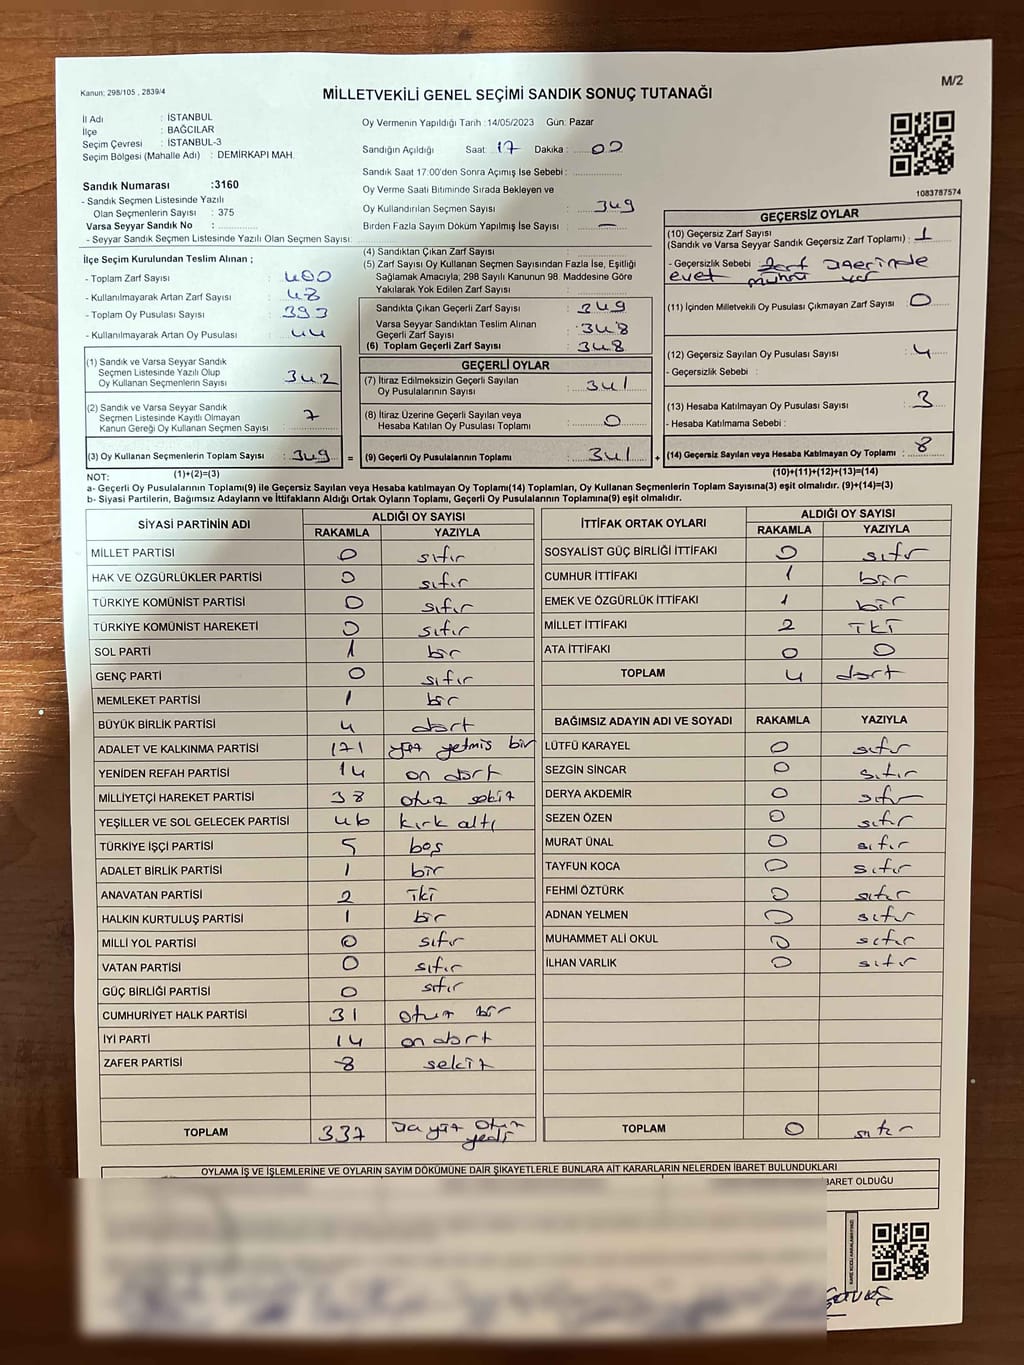 Kanun: 298/105 , 2839/4
M/2
MİLLETVEKİLİ GENEL SEÇİMİ SANDIK SONUÇ TUTANAĞI
İl Adı : İSTANBUL
İlçe : BAĞCILAR
Seçim Çevresi : İSTANBUL-3
Seçim Bölgesi (Mahalle Adı) : DEMİRKAPI MAH.
Sandık Numarası :3160
- Sandık Seçmen Listesinde Yazılı
Olan Seçmenlerin Sayısı : 375
Varsa Seyyar Sandık No :
- Seyyar Sandık Seçmen Listesinde Yazılı Olan Seçmen Sayısı:
Oy Vermenin Yapıldığı Tarih :14/05/2023 Gün: Pazar
Sandığın Açıldığı Saat: 17 Dakika : 00
Sandık Saat 17.00'den Sonra Açımış İse Sebebi :
Oy Verme Saati Bitiminde Sırada Bekleyen ve
Oy Kullandırılan Seçmen Sayısı : 349
Birden Fazla Sayım Döküm Yapılmış İse Sayısı : —
1083787574
İlçe Seçim Kurulundan Teslim Alınan ;
- Toplam Zarf Sayısı : 400
- Kullanılmayarak Artan Zarf Sayısı : 48
- Toplam Oy Pusulası Sayısı : 393
- Kullanılmayarak Artan Oy Pusulası : 44
(1) Sandık ve Varsa Seyyar Sandık
Seçmen Listesinde Yazılı Olup
Oy Kullanan Seçmenlerin Sayısı : 342
(2) Sandık ve Varsa Seyyar Sandık
Seçmen Listesinde Kayıtlı Olmayan
Kanun Gereği Oy Kullanan Seçmen Sayısı : 7
(3) Oy Kullanan Seçmenlerin Toplam Sayısı : 349 =
(4) Sandıktan Çıkan Zarf Sayısı :
(5) Zarf Sayısı Oy Kullanan Seçmen Sayısından Fazla İse, Eşitliği
Sağlamak Amacıyla; 298 Sayılı Kanunun 98. Maddesine Göre
Yakılarak Yok Edilen Zarf Sayısı :
Sandıkta Çıkan Geçerli Zarf Sayısı : 349
Varsa Seyyar Sandıktan Teslim Alınan
Geçerli Zarf Sayısı : 348
(6) Toplam Geçerli Zarf Sayısı : 348
GEÇERLİ OYLAR
(7) İtiraz Edilmeksizin Geçerli Sayılan
Oy Pusulalarının Sayısı : 341
(8) İtiraz Üzerine Geçerli Sayılan veya
Hesaba Katılan Oy Pusulası Toplamı : 0
(9) Geçerli Oy Pusulalarının Toplamı : 341 +
GEÇERSİZ OYLAR
(10) Geçersiz Zarf Sayısı
(Sandık ve Varsa Seyyar Sandık Geçersiz Zarf Toplamı) : 1
- Geçersizlik Sebebi : Zarf üzerinde
evet mührü var
(11) İçinden Milletvekili Oy Pusulası Çıkmayan Zarf Sayısı : 0
(12) Geçersiz Sayılan Oy Pusulası Sayısı : 4
- Geçersizlik Sebebi :
(13) Hesaba Katılmayan Oy Pusulası Sayısı : 3
- Hesaba Katılmama Sebebi :
(14) Geçersiz Sayılan veya Hesaba Katılmayan Oy Toplamı : 8
NOT: (1)+(2)=(3) (10)+(11)+(12)+(13)=(14)
a- Geçerli Oy Pusulalarının Toplamı(9) ile Geçersiz Sayılan veya Hesaba Katılmayan Oy Toplamı(14) Toplamları, Oy Kullanan Seçmenlerin Toplam Sayısına(3) eşit olmalıdır. (9)+(14)=(3)
b- Siyasi Partilerin, Bağımsız Adayların ve İttifakların Aldığı Ortak Oyların Toplamı, Geçerli Oy Pusulalarının Toplamına(9) eşit olmalıdır.
SİYASİ PARTİNİN ADI ALDIĞI OY SAYISI
RAKAMLA YAZIYLA
MİLLET PARTİSİ 0 sıfır
HAK VE ÖZGÜRLÜKLER PARTİSİ 0 sıfır
TÜRKİYE KOMÜNİST PARTİSİ 0 sıfır
TÜRKİYE KOMÜNİST HAREKETİ 0 sıfır
SOL PARTİ 1 bir
GENÇ PARTİ 0 sıfır
MEMLEKET PARTİSİ 1 bir
BÜYÜK BİRLİK PARTİSİ 4 dört
ADALET VE KALKINMA PARTİSİ 171 yüz yetmiş bir
YENİDEN REFAH PARTİSİ 14 on dört
MİLLİYETÇİ HAREKET PARTİSİ 38 otuz sekiz
YEŞİLLER VE SOL GELECEK PARTİSİ 46 kırk altı
TÜRKİYE İŞÇİ PARTİSİ 5 beş
ADALET BİRLİK PARTİSİ 1 bir
ANAVATAN PARTİSİ 2 iki
HALKIN KURTULUŞ PARTİSİ 1 bir
MİLLİ YOL PARTİSİ 0 sıfır
VATAN PARTİSİ 0 sıfır
GÜÇ BİRLİĞİ PARTİSİ 0 sıfır
CUMHURİYET HALK PARTİSİ 31 otuz bir
İYİ PARTİ 14 on dört
ZAFER PARTİSİ 8 sekiz
TOPLAM 337 üç yüz otuz
yedi
İTTİFAK ORTAK OYLARI ALDIĞI OY SAYISI
RAKAMLA YAZIYLA
SOSYALİST GÜÇ BİRLİĞİ İTTİFAKI 0 sıfır
CUMHUR İTTİFAKI 1 bir
EMEK VE ÖZGÜRLÜK İTTİFAKI 1 bir
MİLLET İTTİFAKI 2 İKİ
ATA İTTİFAKI 0 0
TOPLAM 4 dört
BAĞIMSIZ ADAYIN ADI VE SOYADI RAKAMLA YAZIYLA
LÜTFÜ KARAYEL 0 sıfır
SEZGİN SİNCAR 0 sıfır
DERYA AKDEMİR 0 sıfır
SEZEN ÖZEN 0 sıfır
MURAT ÜNAL 0 sıfır
TAYFUN KOCA 0 sıfır
FEHMİ ÖZTÜRK 0 sıfır
ADNAN YELMEN 0 sıfır
MUHAMMET ALİ OKUL 0 sıfır
İLHAN VARLIK 0 sıfır
TOPLAM 0 sıfır
OYLAMA İŞ VE İŞLEMLERİNE VE OYLARIN SAYIM DÖKÜMÜNE DAİR ŞİKAYETLERLE BUNLARA AİT KARARLARIN NELERDEN İBARET BULUNDUKLARI
BARET OLDUĞU